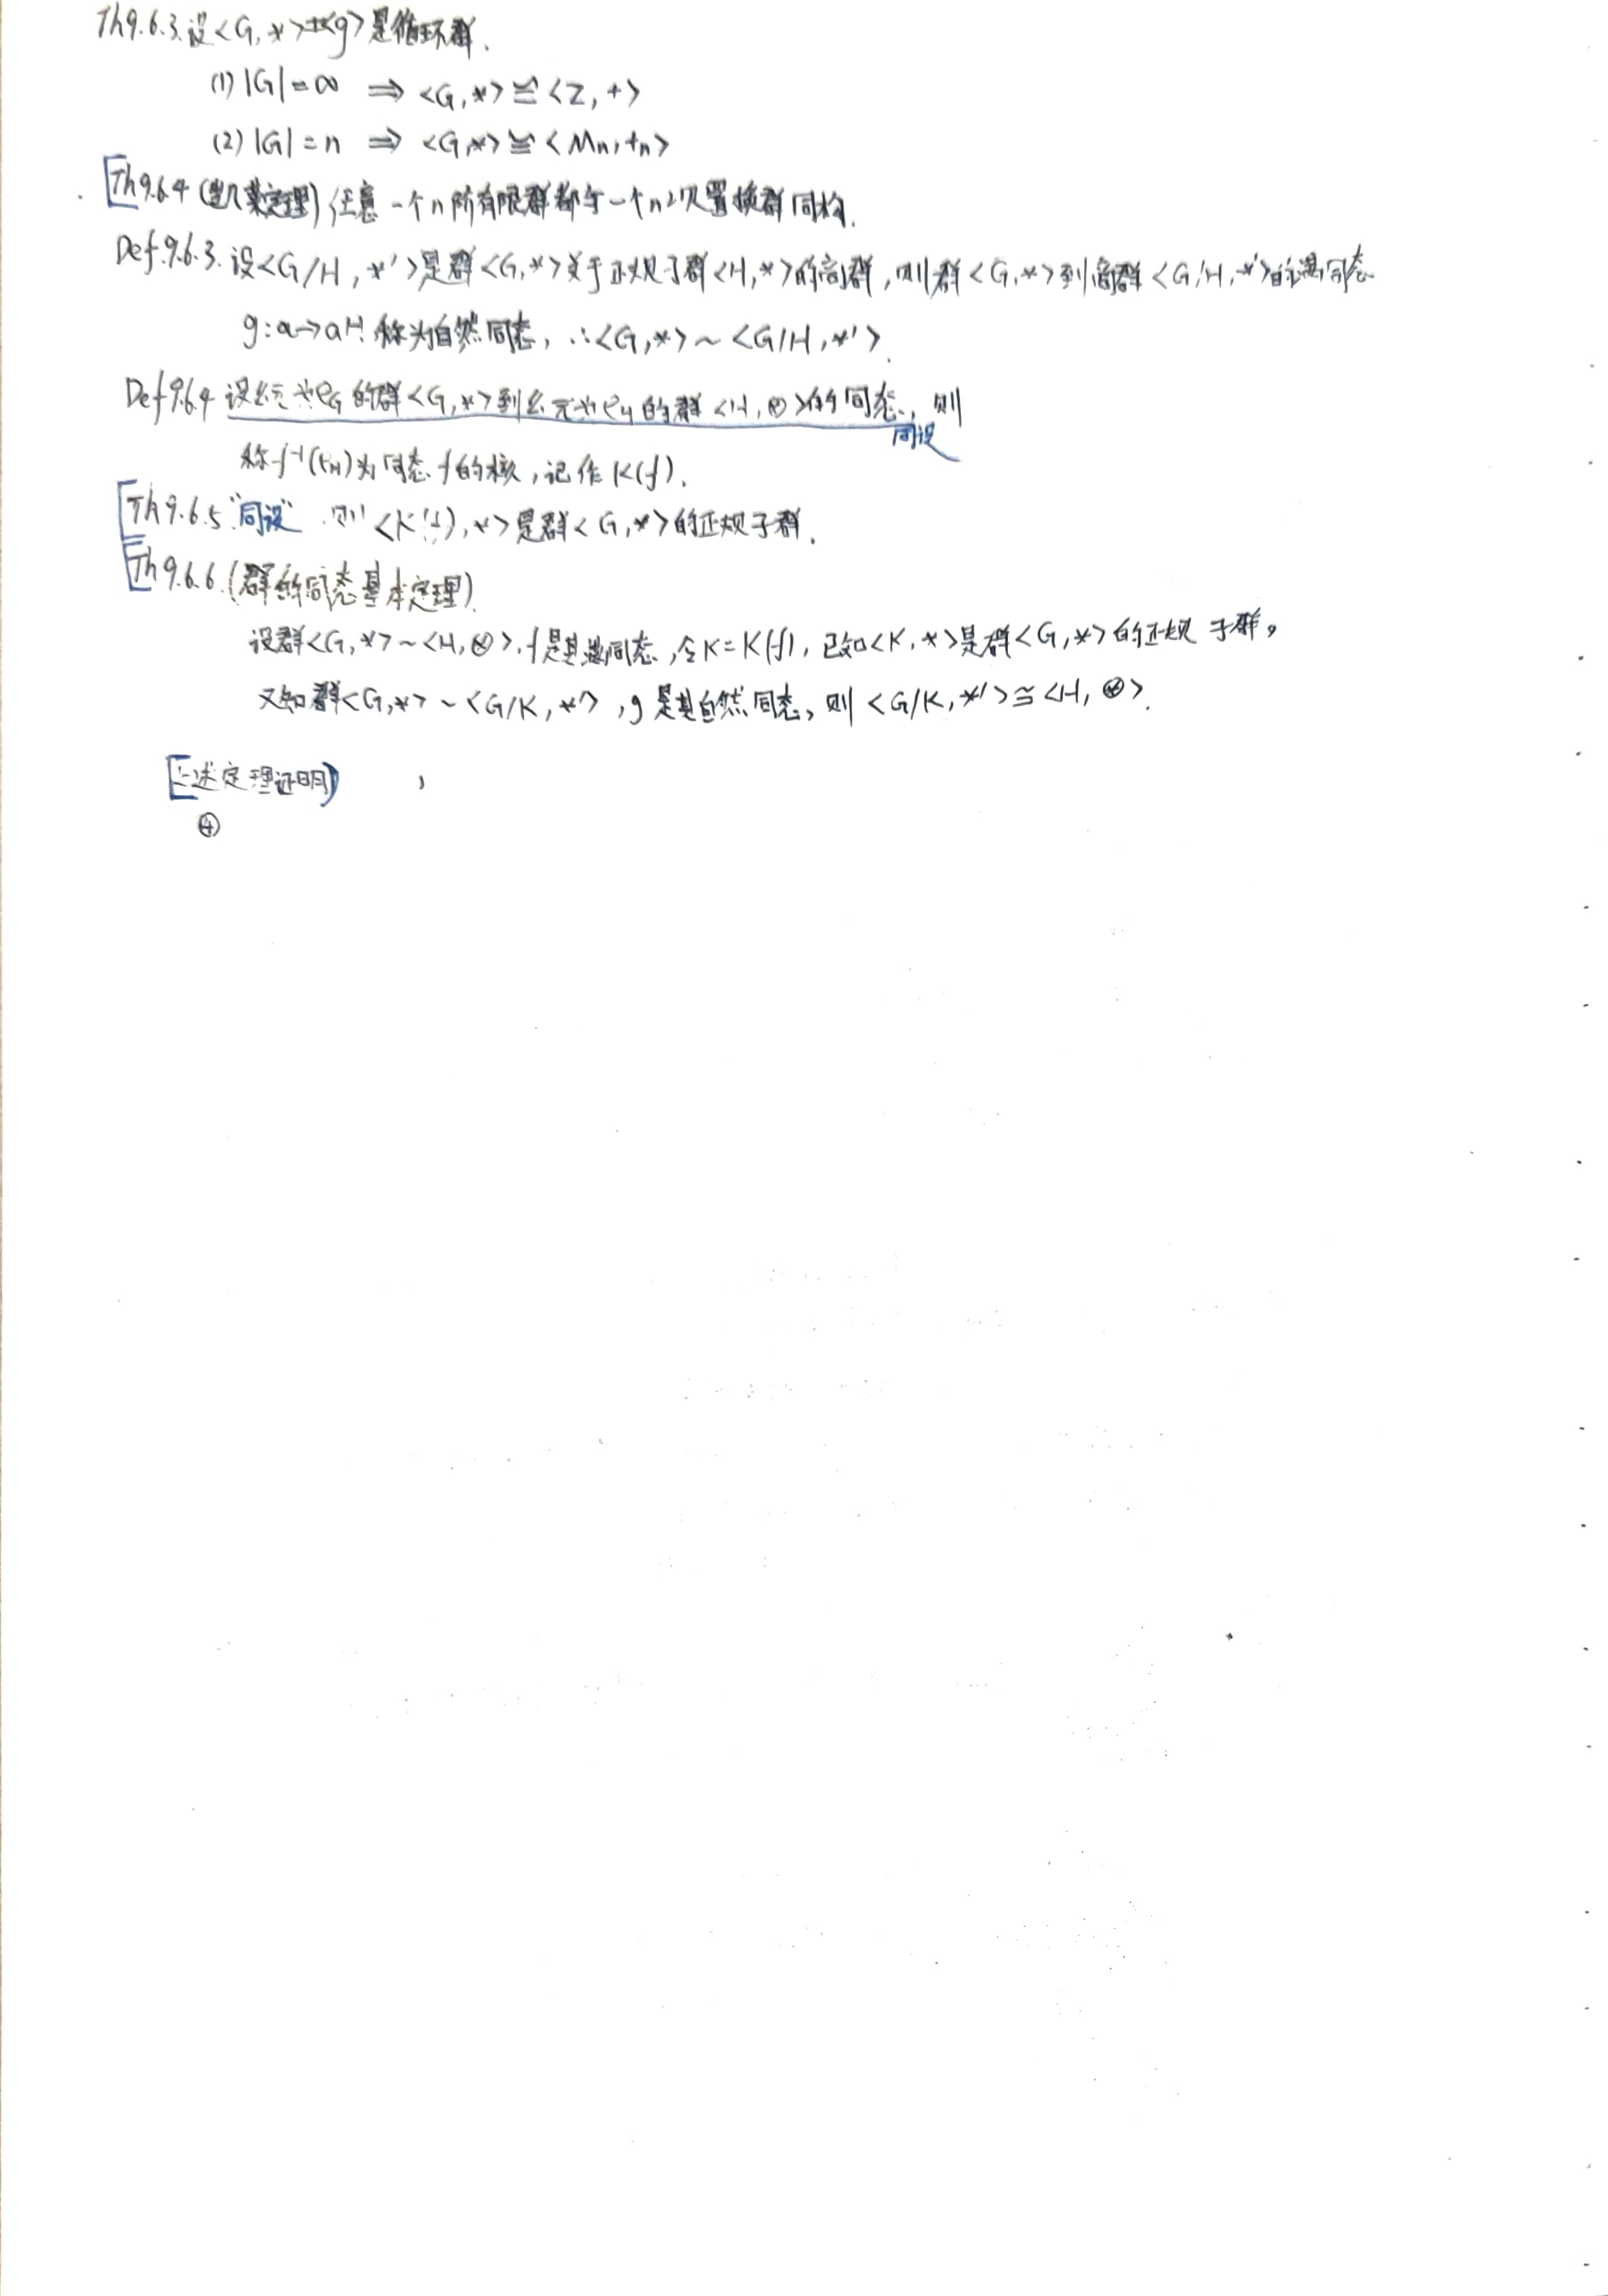 Th9.6.3.设<G,*>=<g>是循环群.
(1) |G|=∞ ⇒ <G,*>≌<Z,+>
(2) |G|=n ⇒ <G,*>≌<Mn,+n>
[Th9.6.4 (凯莱定理) 任意一个n阶有限群都与一个n次置换群同构.
Def.9.6.3.设<G/H,*'>是群<G,*>关于正规子群<H,*>的商群,则群<G,*>到商群<G/H,*'>的满同态
g:a→aH 称为自然同态,∴<G,*>~<G/H,*'>.
Def9.6.4 设幺元为eG的群<G,*>到幺元为eH的群<H,⊛>的同态,则
同设
称f⁻¹(eH)为同态f的核,记作K(f).
[Th9.6.5"同设" 则<K(f),*>是群<G,*>的正规子群.
[Th9.6.6.(群的同态基本定理).
设群<G,*>~<H,⊛>,f是其满同态,令K=K(f),已知<K,*>是群<G,*>的正规子群,
又知群<G,*>~<G/K,*'>,g是其自然同态,则<G/K,*'>≌<H,⊛>.
[上述定理证明)
④